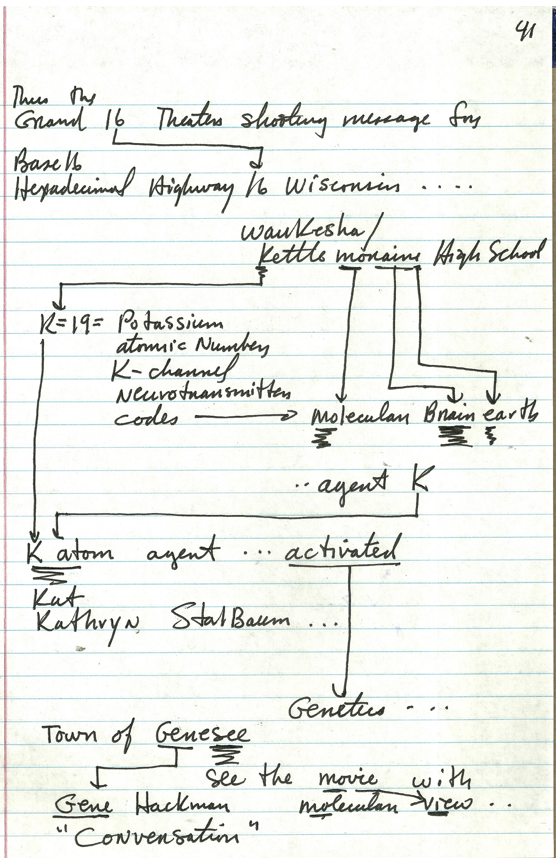 41
Thus the
Grand 16 Theater shooting message for
Base 16
Hexadecimal Highway 16 Wisconsin ....
Waukesha/
Kettle moraine High School
K=19= Potassium
atomic Number
K-channel
neurotransmitter
codes
molecular Brain earth
.. agent K
K atom agent ... activated
Kat
Kathryn StatBaum ...
Genetics ...
Town of Genesee
see the movie with
Gene Hackman molecular view ..
"Conversation"